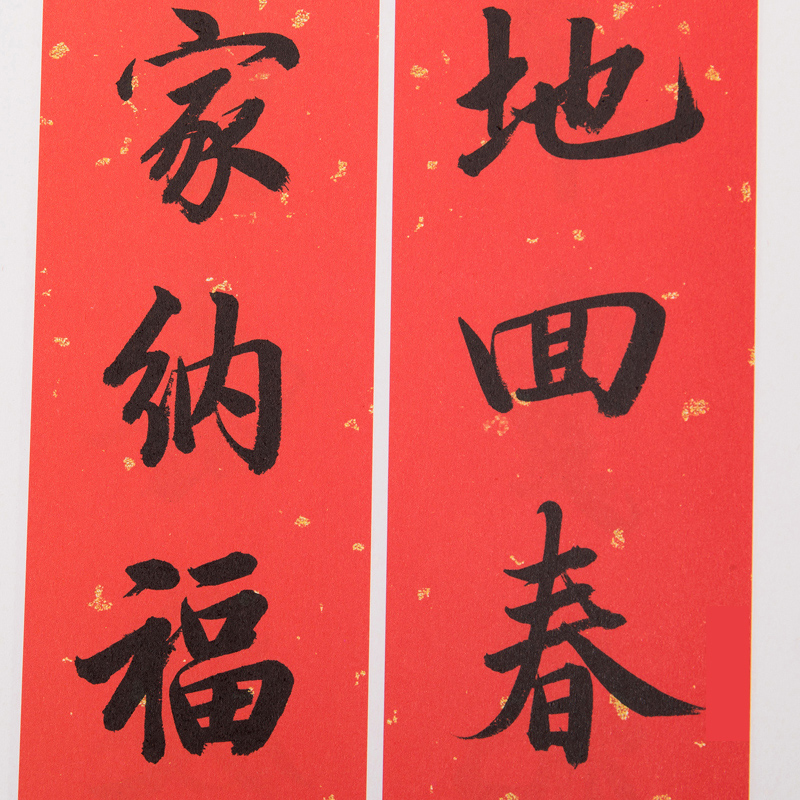 地回春
家纳福